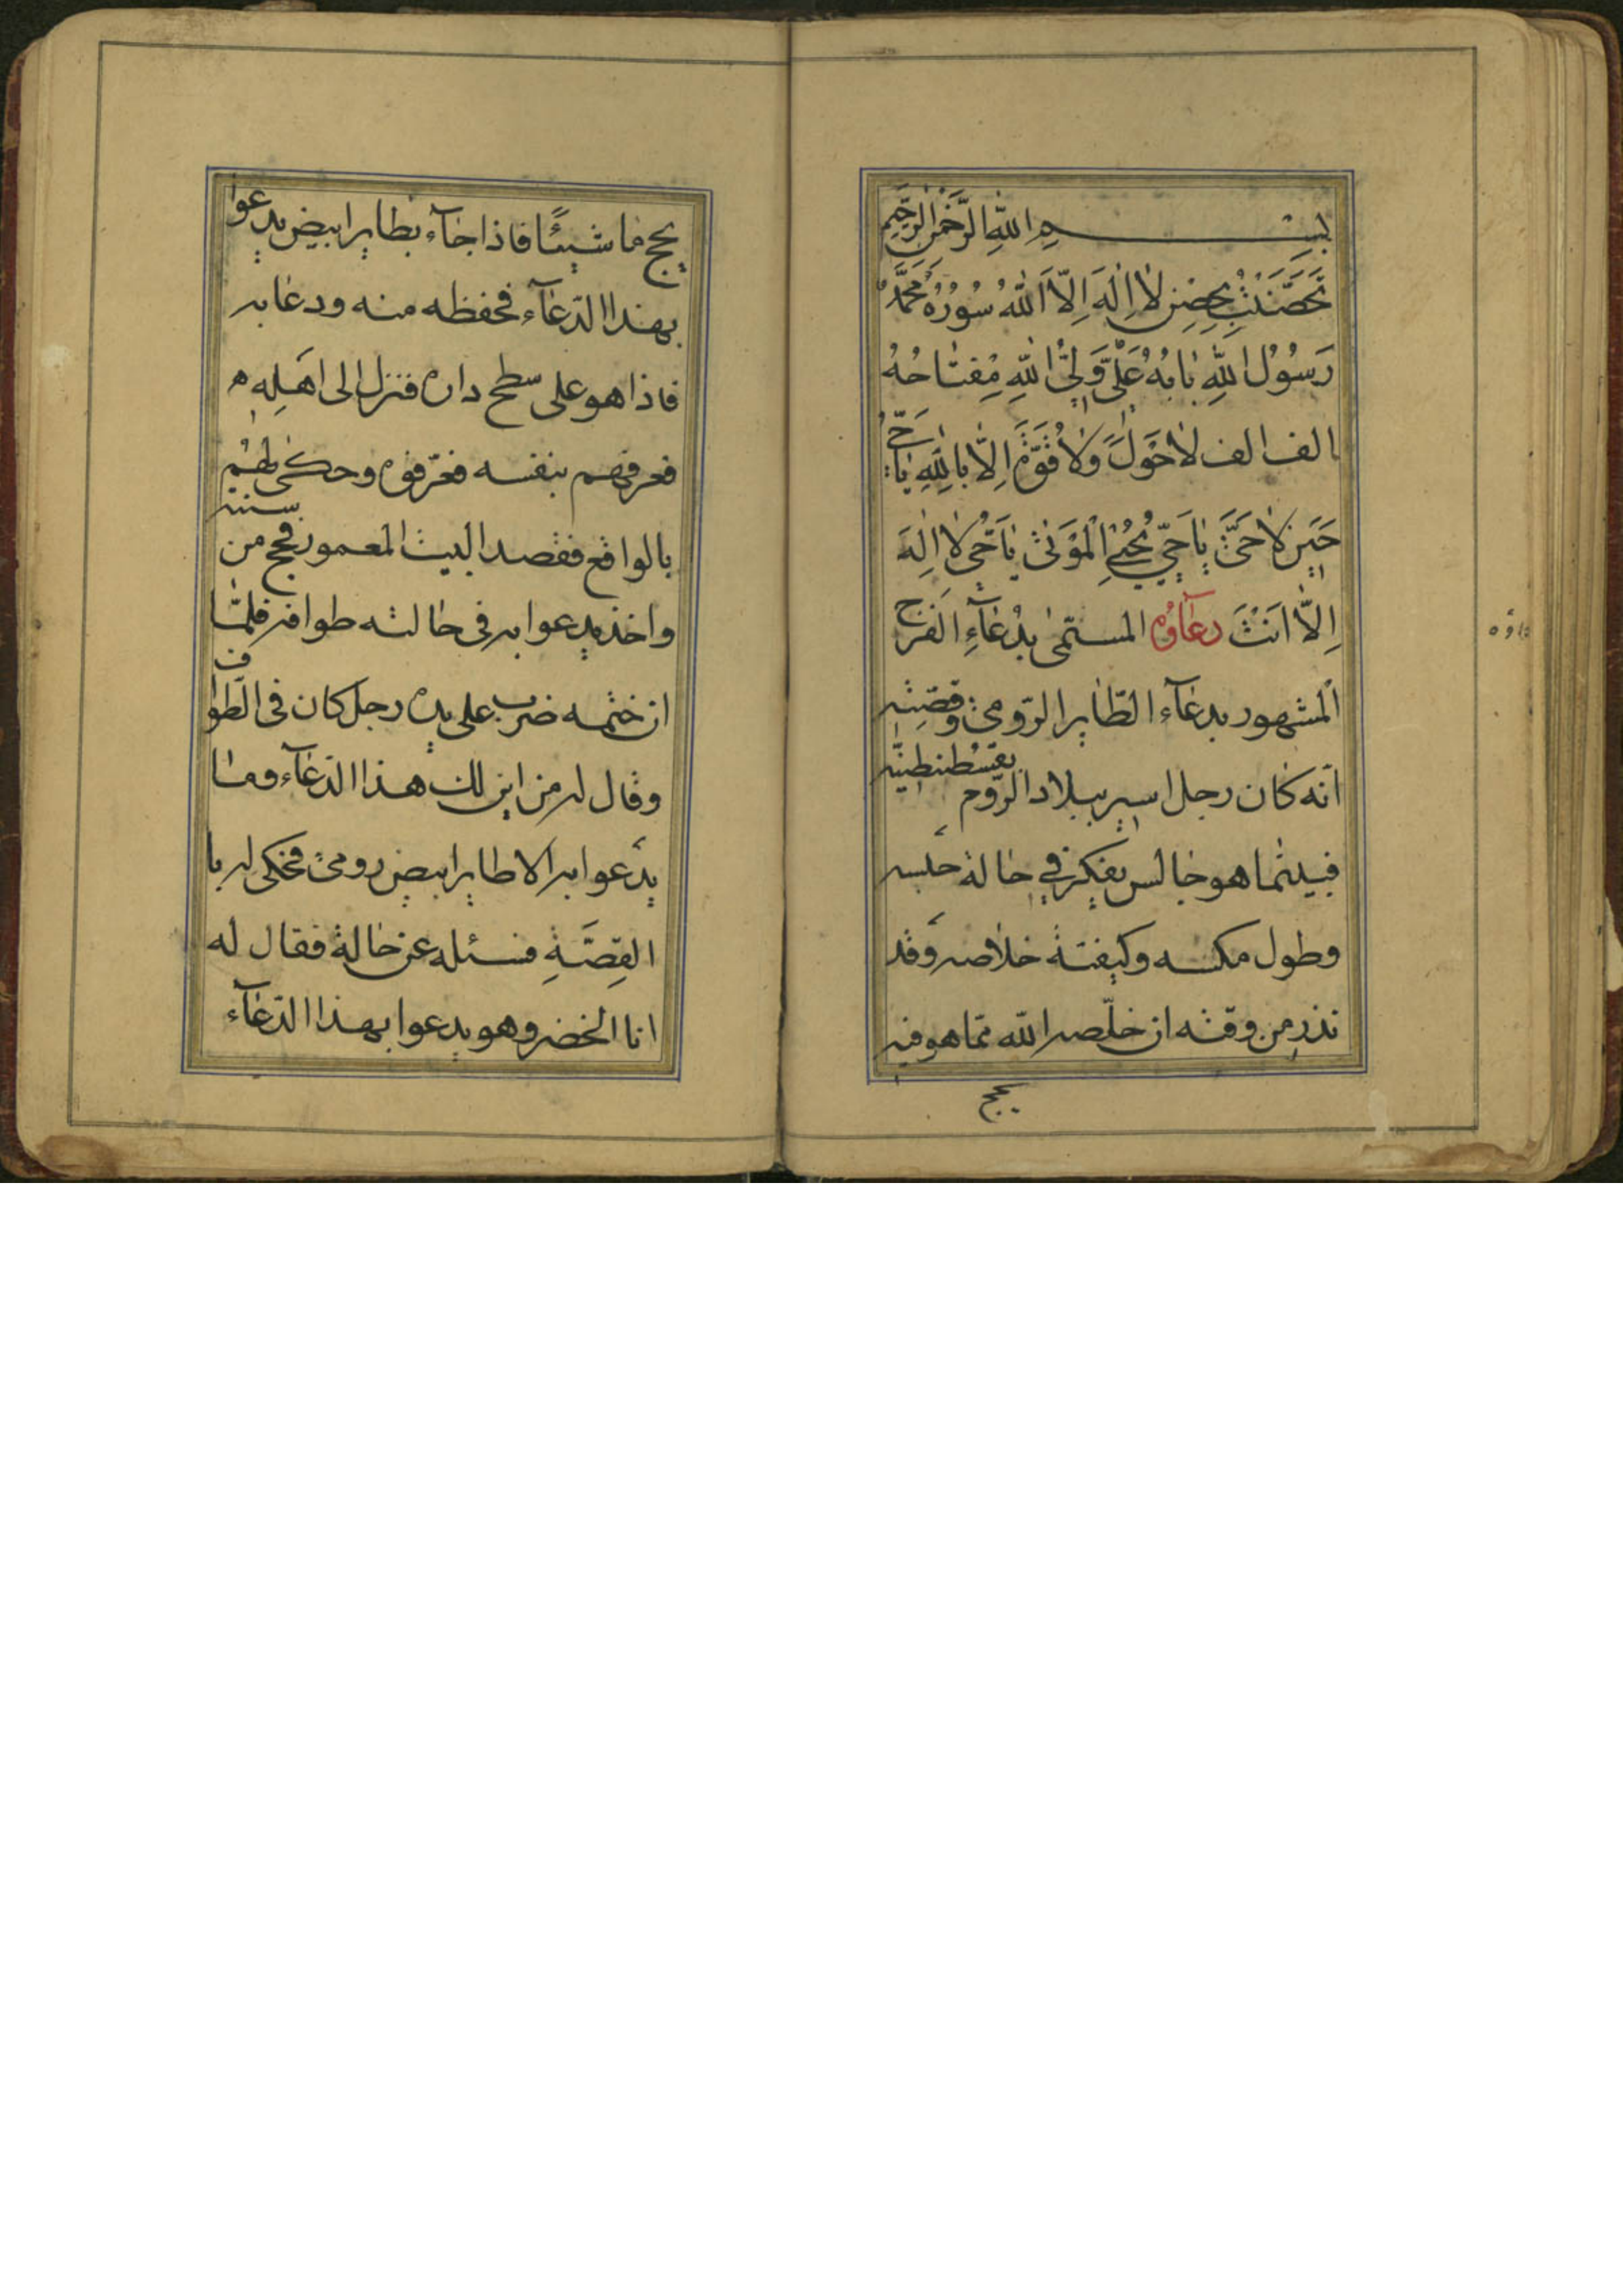 بِسْمِ اللّٰهِ الرَّحْمٰنِ الرَّحِيمِ
تَحَصَّنْتُ بِحِصْنِ لَا اِلٰهَ اِلَّا اللّٰهُ سُورُهُ مُحَمَّدٌ
رَسُولُ اللّٰهِ بَابُهُ عَلِيٌّ وَلِيُّ اللّٰهِ مِفْتَاحُهُ
الف الف لَا حَوْلَ وَلَا قُوَّةَ اِلَّا بِاللّٰهِ يَا حَيُّ
حِينَ لَا حَيَّ يَا حَيُّ مُحْيِيَ الْمَوْتٰى يَا حَيُّ لَا اِلٰهَ
اِلَّا اَنْتَ دعاؤه المسمّى بِدُعَآءِ الْفَرَج
المشهور بدعآء الطّاير الرّومي وقصّته
انّه كان رجل اسير ببلاد الرّوم بقسطنطينيّه
فبينما هو جالس يفكر في حالة حبسه
وطول مكسه وكيفيّة خلاصه وقد
نذر من وقته ان خلّصه الله ممّا هو فيه
يحج
داؤه
يحج ماشيئًا فاذا جآء بطاير ابيض يدعوا
بهذا الدّعآء فحفظه منه ودعا به
فاذا هو على سطح داره فنزل الى اهله
فعرفهم بنفسه فعرّفوه وحكى لهم
بالواقع فقصد البيت المعمور فحج من سنته
واخذ يدعوا به في حالته طوافه فلمّا
ان ختمه ضرب على يده رجل كان في الطّواف
وقال له من اين لك هذا الدّعآء وما
يدعوا به الا طاير ابيض رومي فحكى له با
القِصَّةِ فسئله عن حالة فقال له
انا الخضر وهو يدعوا بهذا الدّعآء